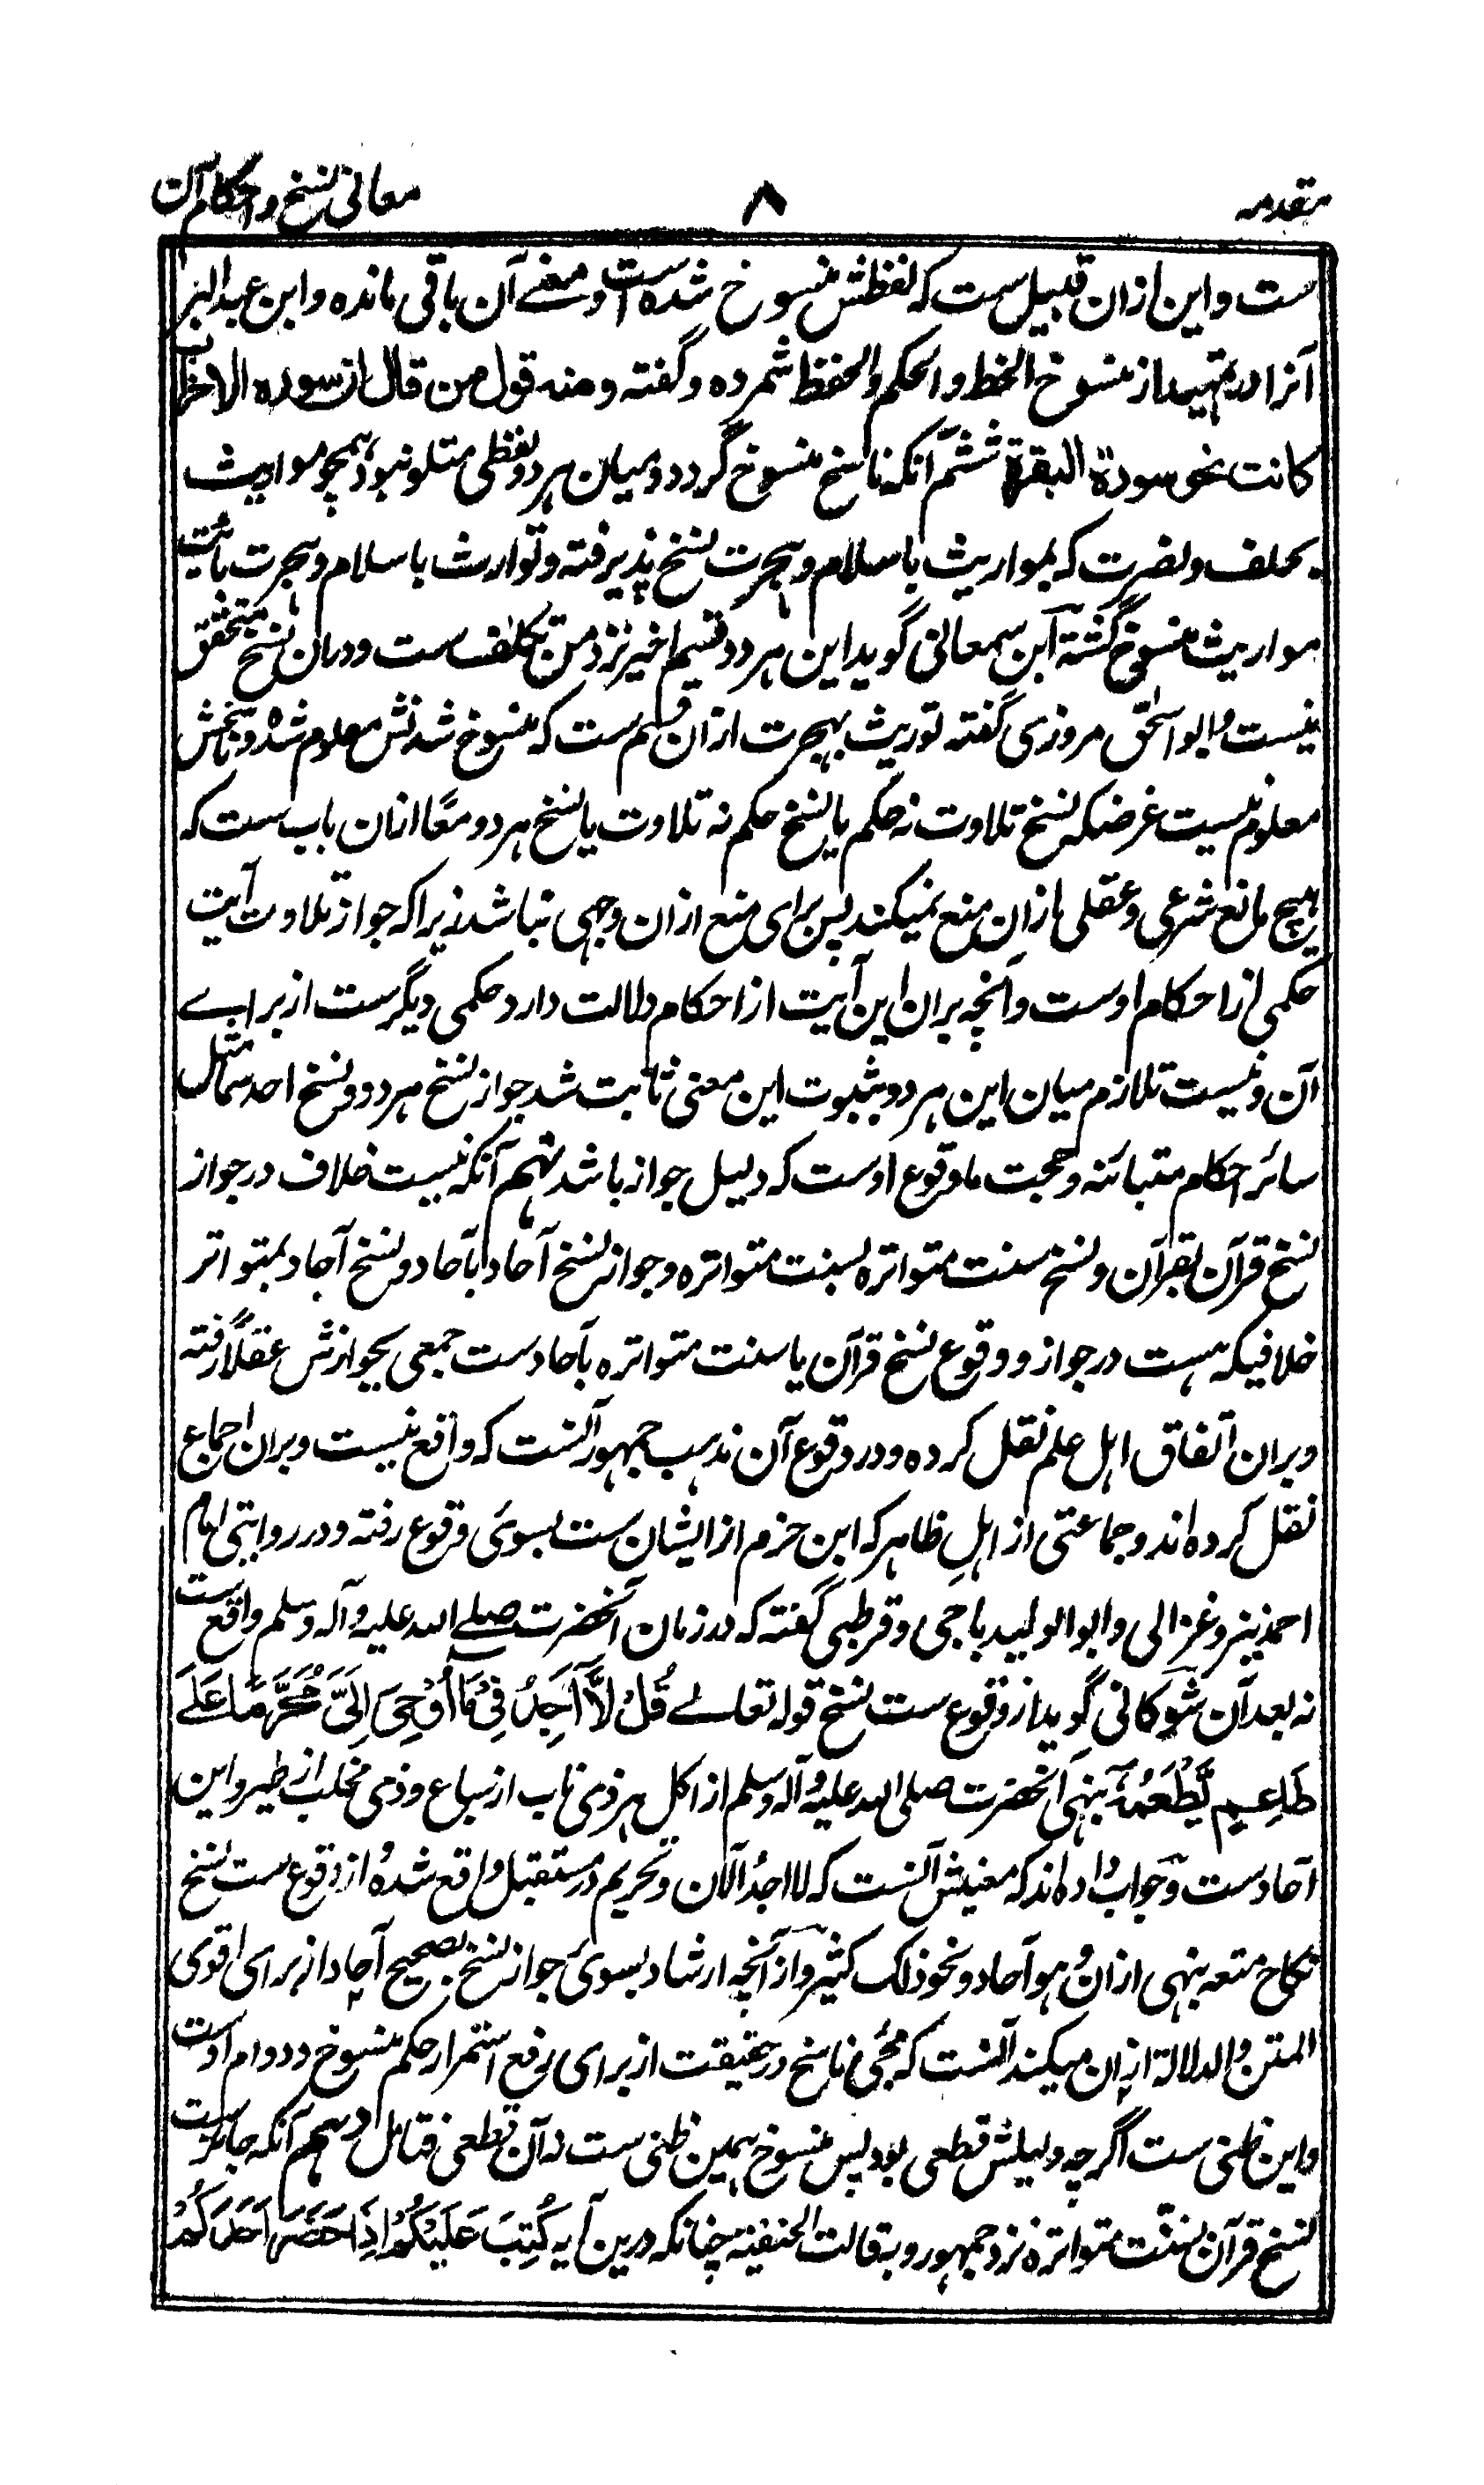 مقدمه ۸ معانی نسخ و احکام آن
ست و این ازان قبیل ست که لفظش منسوخ شده است و معنے آن باقی مانده و ابن عبد البر
آنرا در تمهید از منسوخ الخط و الحکم و الحفظ شمرده و گفته و منه قول من قال ان سورة الاحزاب
کانت نحو سورة البقرة ششم آنکه ناسخ منسوخ گردد و میان هر دو لفظی متلو نبود همچو مواریث
بحلف و نصرت که بمواریث باسلام و هجرت نسخ پذیرفته و توارث باسلام و هجرت بآیت
مواریث منسوخ گشته ابن سمعانی گوید این هر دو قسم اخیر نزد من تکلف ست و دران نسخ متحقق
نیست و ابو اسحٰق مروزی گفته توریث بهجرت ازان قسم ست که منسوخ شدنش معلوم شده و ناسخش
معلوم نیست غرضکه نسخ تلاوت نه حکم یا نسخ حکم نه تلاوت یا نسخ هر دو معًا ازان باب ست که
هیچ مانع شرعی و عقلی ازان منع نمیکند پس برای منع ازان وجهی نباشد زیراکه جواز تلاوت آیت
حکمی از احکام اوست و آنچه بران این آیت از احکام دلالت دارد حکمی دیگرست از براے
آن و نیست تلازم میان این هر دو بثبوت این معنی ثابت شد جواز نسخ هر دو و نسخ احدهما مثل
سائر احکام متبائنه و حجت ما وقوع اوست که دلیل جواز باشد نهم آنکه نیست خلاف در جواز
نسخ قرآن بقرآن و نسخ سنت متواتره بسنت متواتره و جواز نسخ آحاد بآحاد و نسخ آحاد بمتواتر
خلافیکه هست در جواز و وقوع نسخ قرآن یا سنت متواتره بآحادست جمعی بجوازش عقلاً رفته
و بران اتفاق اهل علم نقل کرده و در وقوع آن مذهب جمهور آنست که واقع نیست و بران اجماع
نقل کرده اند و جماعتی از اهلِ ظاهر که ابن حزم از ایشان ست بسوئ وقوع رفته و در روایتی امام
احمد نیز و غزالی و ابو الولید باجی و قرطبی گفته که در زمان آنحضرت صلے الله علیه و آله و سلم واقع ست
نه بعد آن شوکانی گوید از وقوع ست نسخ قوله تعالے قُلْ لَّآ اَجِدُ فِیْ مَآ اُوْحِیَ اِلَیَّ مُحَرَّمًا عَلٰے
طَاعِمٍ یَّطْعَمُهٗ بنهی آنحضرت صلی الله علیه و آله و سلم از اکل هر ذی ناب از سباع و ذی مخلب از طیر و این
آحادست و جواب داده اند که معنیش آنست که لا اجد الآن و تحریم در مستقبل واقع شده و از وقوع ست نسخ
نکاح متعه بنهی ازان و هو آحاد و نحو ذلک کثیر و از آنچه ارشاد بسوئ جواز نسخ بصحیح آحاد از برای اقوی
المتن و الدلالة ازان میکند آنست که مجئ ناسخ در حقیقت از برای رفع استمرار حکم منسوخ و دوام اوست
و این ظنی ست اگرچه دلیلش قطعی بود پس منسوخ همین ظنی ست نه آن قطعی فتامل دهم آنکه جائزست
نسخ قرآن بسنت متواتره نزد جمهور و به قالت الحنفیة چنانکه درین آیه کُتِبَ عَلَیْکُمْ اِذَا حَضَرَ اَحَدَکُمُ